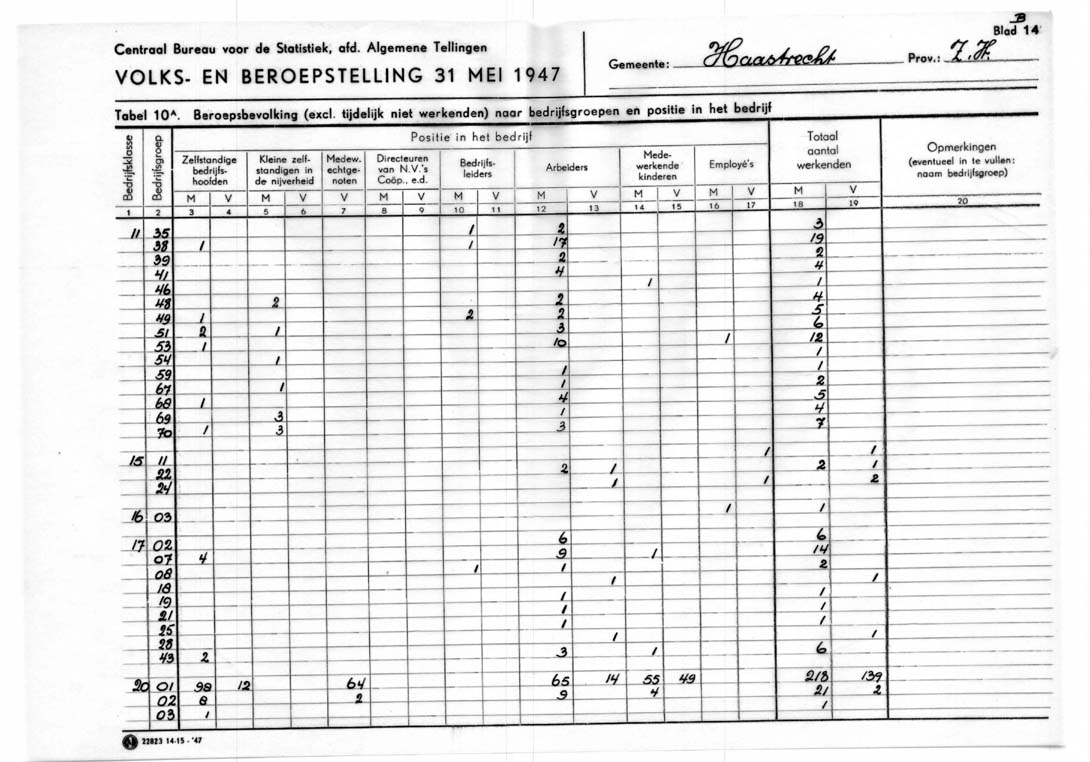 B
Blad 14
Centraal Bureau voor de Statistiek, afd. Algemene Tellingen
VOLKS- EN BEROEPSTELLING 31 MEI 1947
Gemeente: Haastrecht Prov.: Z.H.
Tabel 10A. Beroepsbevolking (excl. tijdelijk niet werkenden) naar bedrijfsgroepen en positie in het bedrijf
Bedrijfsklasse
Bedrijfsgroep
Positie in het bedrijf
Zelfstandige
bedrijfs-
hoofden
Kleine zelf-
standigen in
de nijverheid
Medew.
echtge-
noten
Directeuren
van N.V.'s
Coöp., e.d.
Bedrijfs-
leiders
Arbeiders
Mede-
werkende
kinderen
Employé's
Totaal
aantal
werkenden
Opmerkingen
(eventueel in te vullen:
naam bedrijfsgroep)
M V M V V M V M V M V M V M V M V
1 2 3 4 5 6 7 8 9 10 11 12 13 14 15 16 17 18 19 20
11 35 1 2 3
38 1 1 17 19
39 2 2
41 4 4
46 1 1
48 2 2 4
49 1 2 2 5
51 2 1 3 6
53 1 10 1 12
54 1 1
59 1 1
67 1 1 2
68 1 4 5
69 3 1 4
70 1 3 3 7
15 11 1 1
22 2 1 2 1
24 1 1 2
16 03 1 1
17 02 6 6
07 4 9 1 14
08 1 1 2
18 1 1
19 1 1
21 1 1
25 1 1
28 1 1
43 2 3 1 6
20 01 98 12 64 65 14 55 49 218 139
02 8 2 9 4 21 2
03 1 1
22823 14-15 - '47